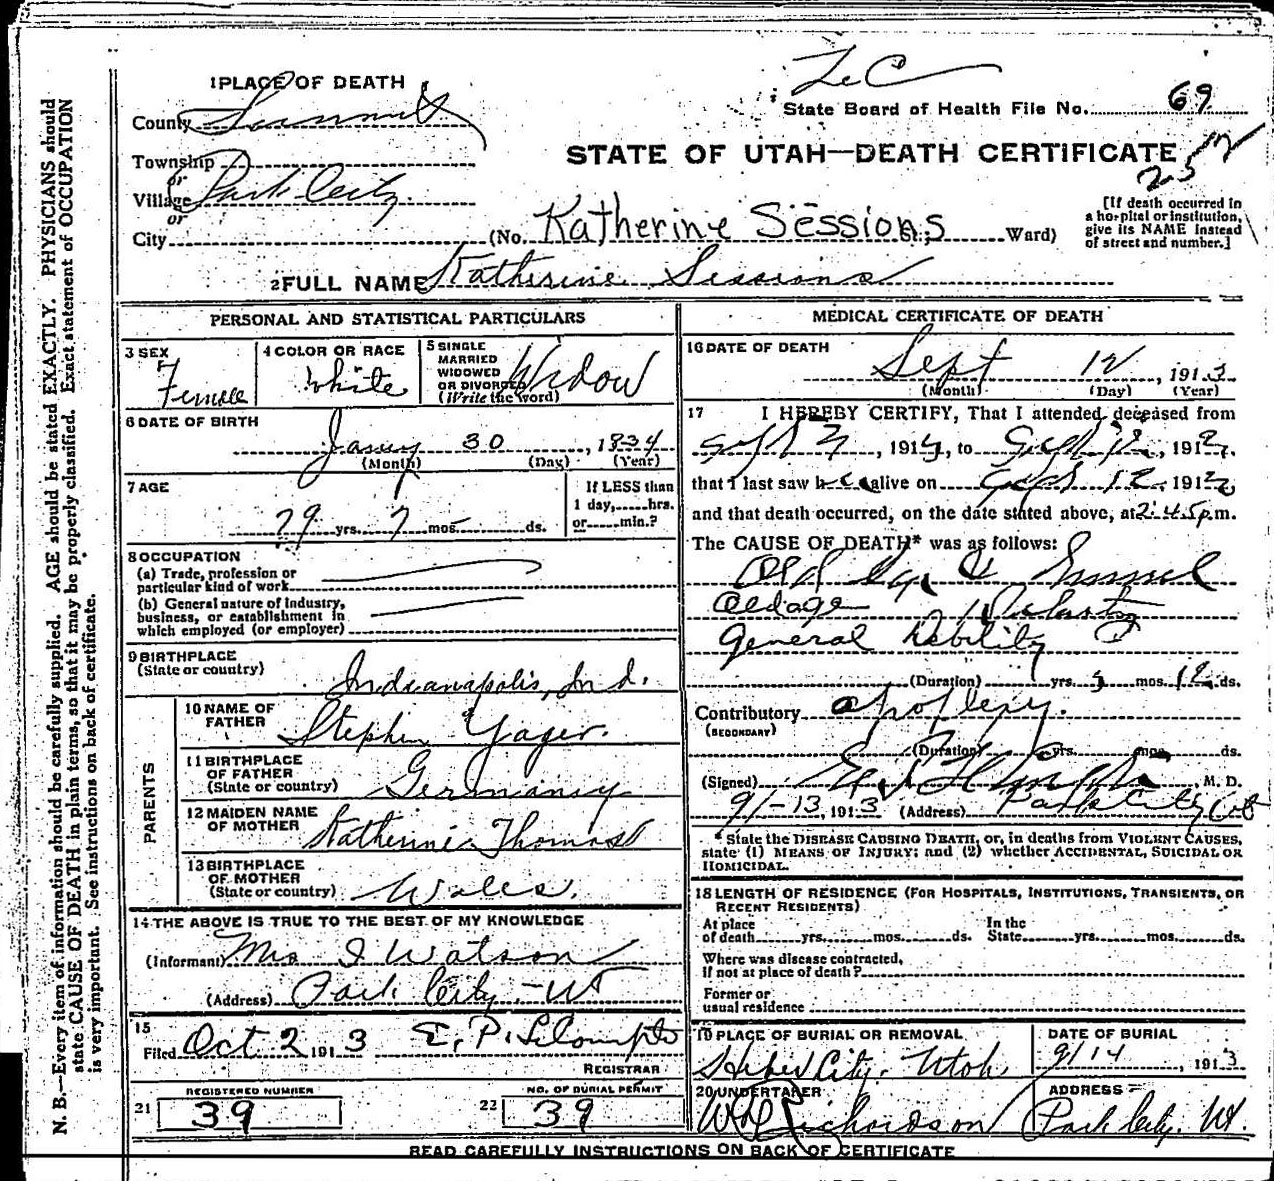 1 PLACE OF DEATH
County Summit
Township
or
Village Park City
or
City (No. Katherine Sessions St.; Ward)
State Board of Health File No. 69
STATE OF UTAH—DEATH CERTIFICATE
25
[If death occurred in
a hospital or institution,
give its NAME instead
of street and number.]
2 FULL NAME Katherine Sessions
PERSONAL AND STATISTICAL PARTICULARS
3 SEX
Female
4 COLOR OR RACE
White
5 SINGLE
MARRIED
WIDOWED
OR DIVORCED
(Write the word)
Widow
6 DATE OF BIRTH
30, 1834
(Month) (Day) (Year)
7 AGE
79 yrs. 7 mos. ds.
If LESS than
1 day, hrs.
or min.?
8 OCCUPATION
(a) Trade, profession or
particular kind of work
(b) General nature of industry,
business, or establishment in
which employed (or employer)
9 BIRTHPLACE
(State or country)
Indianapolis, Ind.
PARENTS
10 NAME OF
FATHER
Stephen Yager.
11 BIRTHPLACE
OF FATHER
(State or country)
Germany
12 MAIDEN NAME
OF MOTHER
Katherine Thomas
13 BIRTHPLACE
OF MOTHER
(State or country)
Wales.
14 THE ABOVE IS TRUE TO THE BEST OF MY KNOWLEDGE
(Informant) Mrs I Watson
(Address) Park City - Ut
15
Filed Oct 2 1913 E. P.
REGISTRAR
REGISTERED NUMBER
21 39
NO. OF BURIAL PERMIT
22 39
MEDICAL CERTIFICATE OF DEATH
16 DATE OF DEATH
Sept 12, 1913
(Month) (Day) (Year)
17 I HEREBY CERTIFY, That I attended deceased from
, 191 , to Sept 12, 191
that I last saw her alive on Sept 12, 191
and that death occurred, on the date stated above, at 2:45 p.m.
The CAUSE OF DEATH* was as follows:
Old age &
Old age Debility
General Debility
(Duration) yrs. 3 mos. 12 ds.
Contributory apoplexy.
(SECONDARY)
(Duration) yrs. mos. ds.
(Signed) , M. D.
9/-13, 1913 (Address) Park City Ut
* State the DISEASE CAUSING DEATH, or, in deaths from VIOLENT CAUSES,
state (1) MEANS OF INJURY; and (2) whether ACCIDENTAL, SUICIDAL OR
HOMICIDAL.
18 LENGTH OF RESIDENCE (FOR HOSPITALS, INSTITUTIONS, TRANSIENTS, OR
RECENT RESIDENTS)
At place
of death yrs. mos. ds.
In the
State yrs. mos. ds.
Where was disease contracted,
if not at place of death?
Former or
usual residence
19 PLACE OF BURIAL OR REMOVAL
Heber City. Utah
DATE OF BURIAL
9/14, 1913
20 UNDERTAKER
W Richardson
ADDRESS
Park City, Ut.
READ CAREFULLY INSTRUCTIONS ON BACK OF CERTIFICATE
N. B.—Every item of information should be carefully supplied. AGE should be stated EXACTLY. PHYSICIANS should
state CAUSE OF DEATH in plain terms, so that it may be properly classified. Exact statement of OCCUPATION
is very important. See instructions on back of certificate.